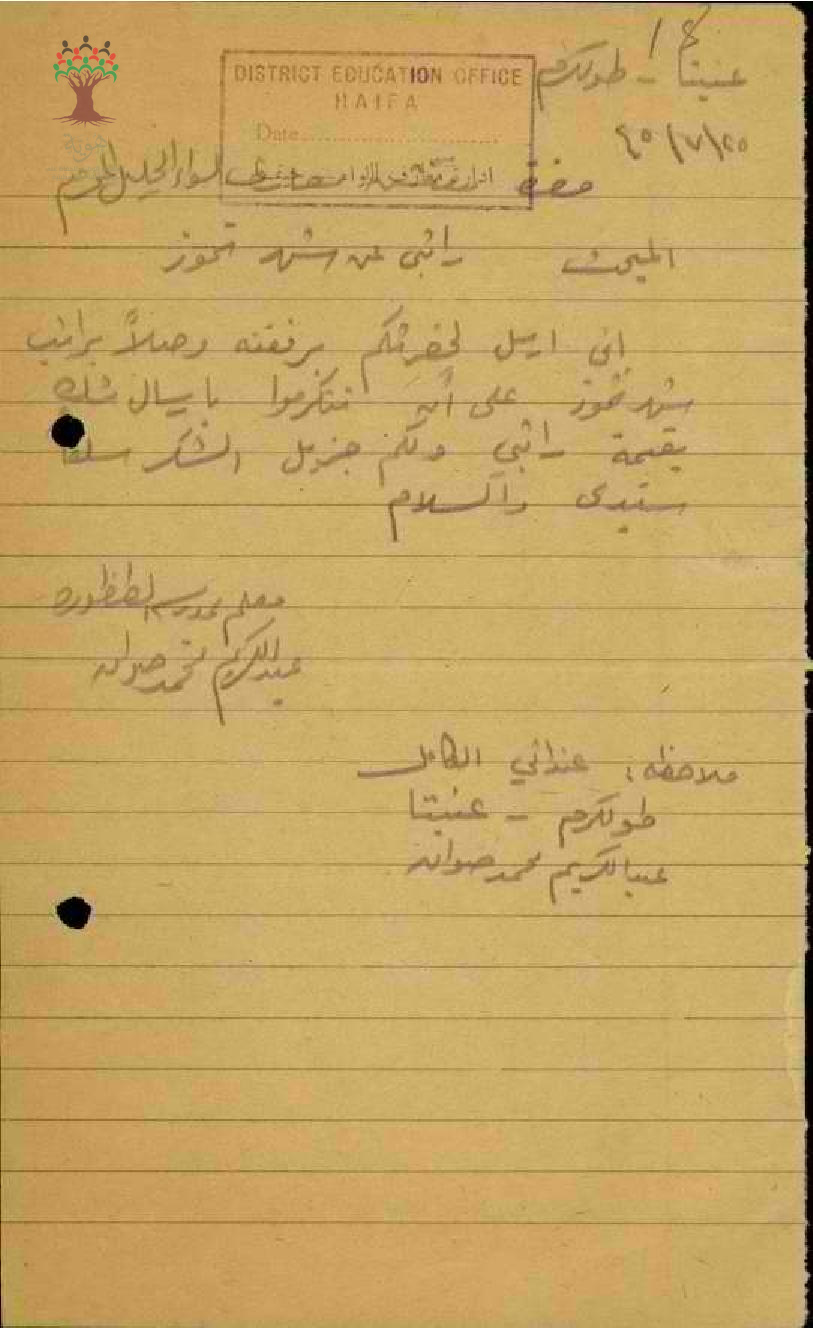 عنبتا – طولكرم
٤٥/٧/٢٥
DISTRICT EDUCATION OFFICE
HAIFA
Date
هوية
حضرة لواء الجليل المحترم
المبحث راتبي عن شهر تموز
اني ارسل لحضرتكم برفقته وصلاً براتب
شهر تموز على أن تتكرموا بارسال شك
بقيمة راتبي ولكم جزيل الشكر سلفا
سيدي والسلام
معلم بمدرسة الطنطورة
عبد الكريم محمد
ملاحظه : عنواني الكامل
طولكرم – عنبتا
عبد الكريم محمد